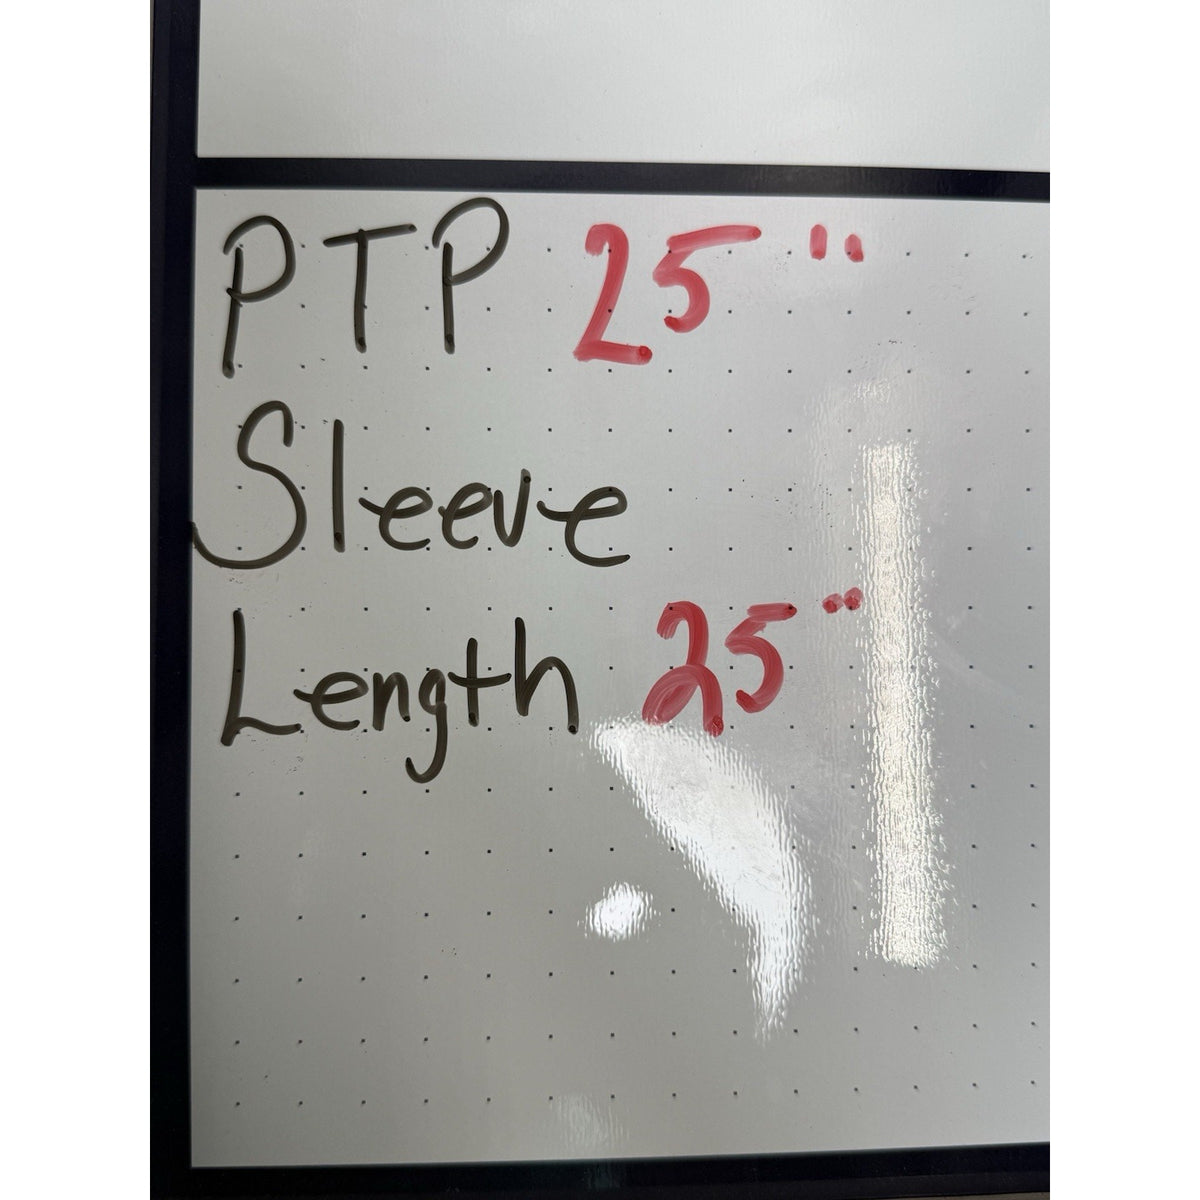 PTP 25"
Sleeve
Length 25"